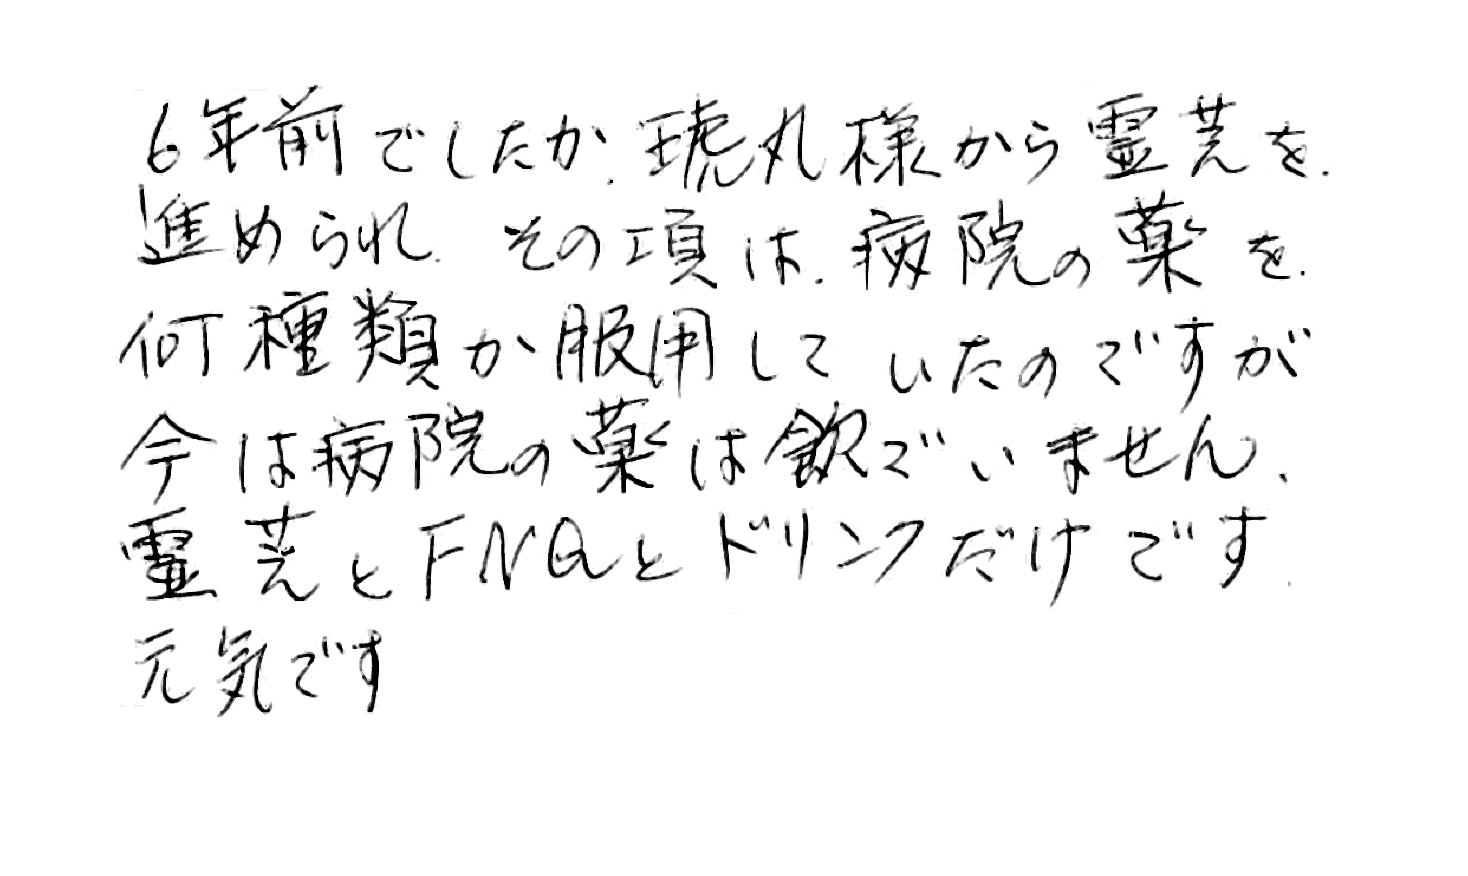 6年前でしたか、琥丸様から霊芝を、
進められ、その項は、病院の薬を、
何種類か服用していたのですが
今は病院の薬は飲でいません、
霊芝とFNQとドリンクだけです、
元気です